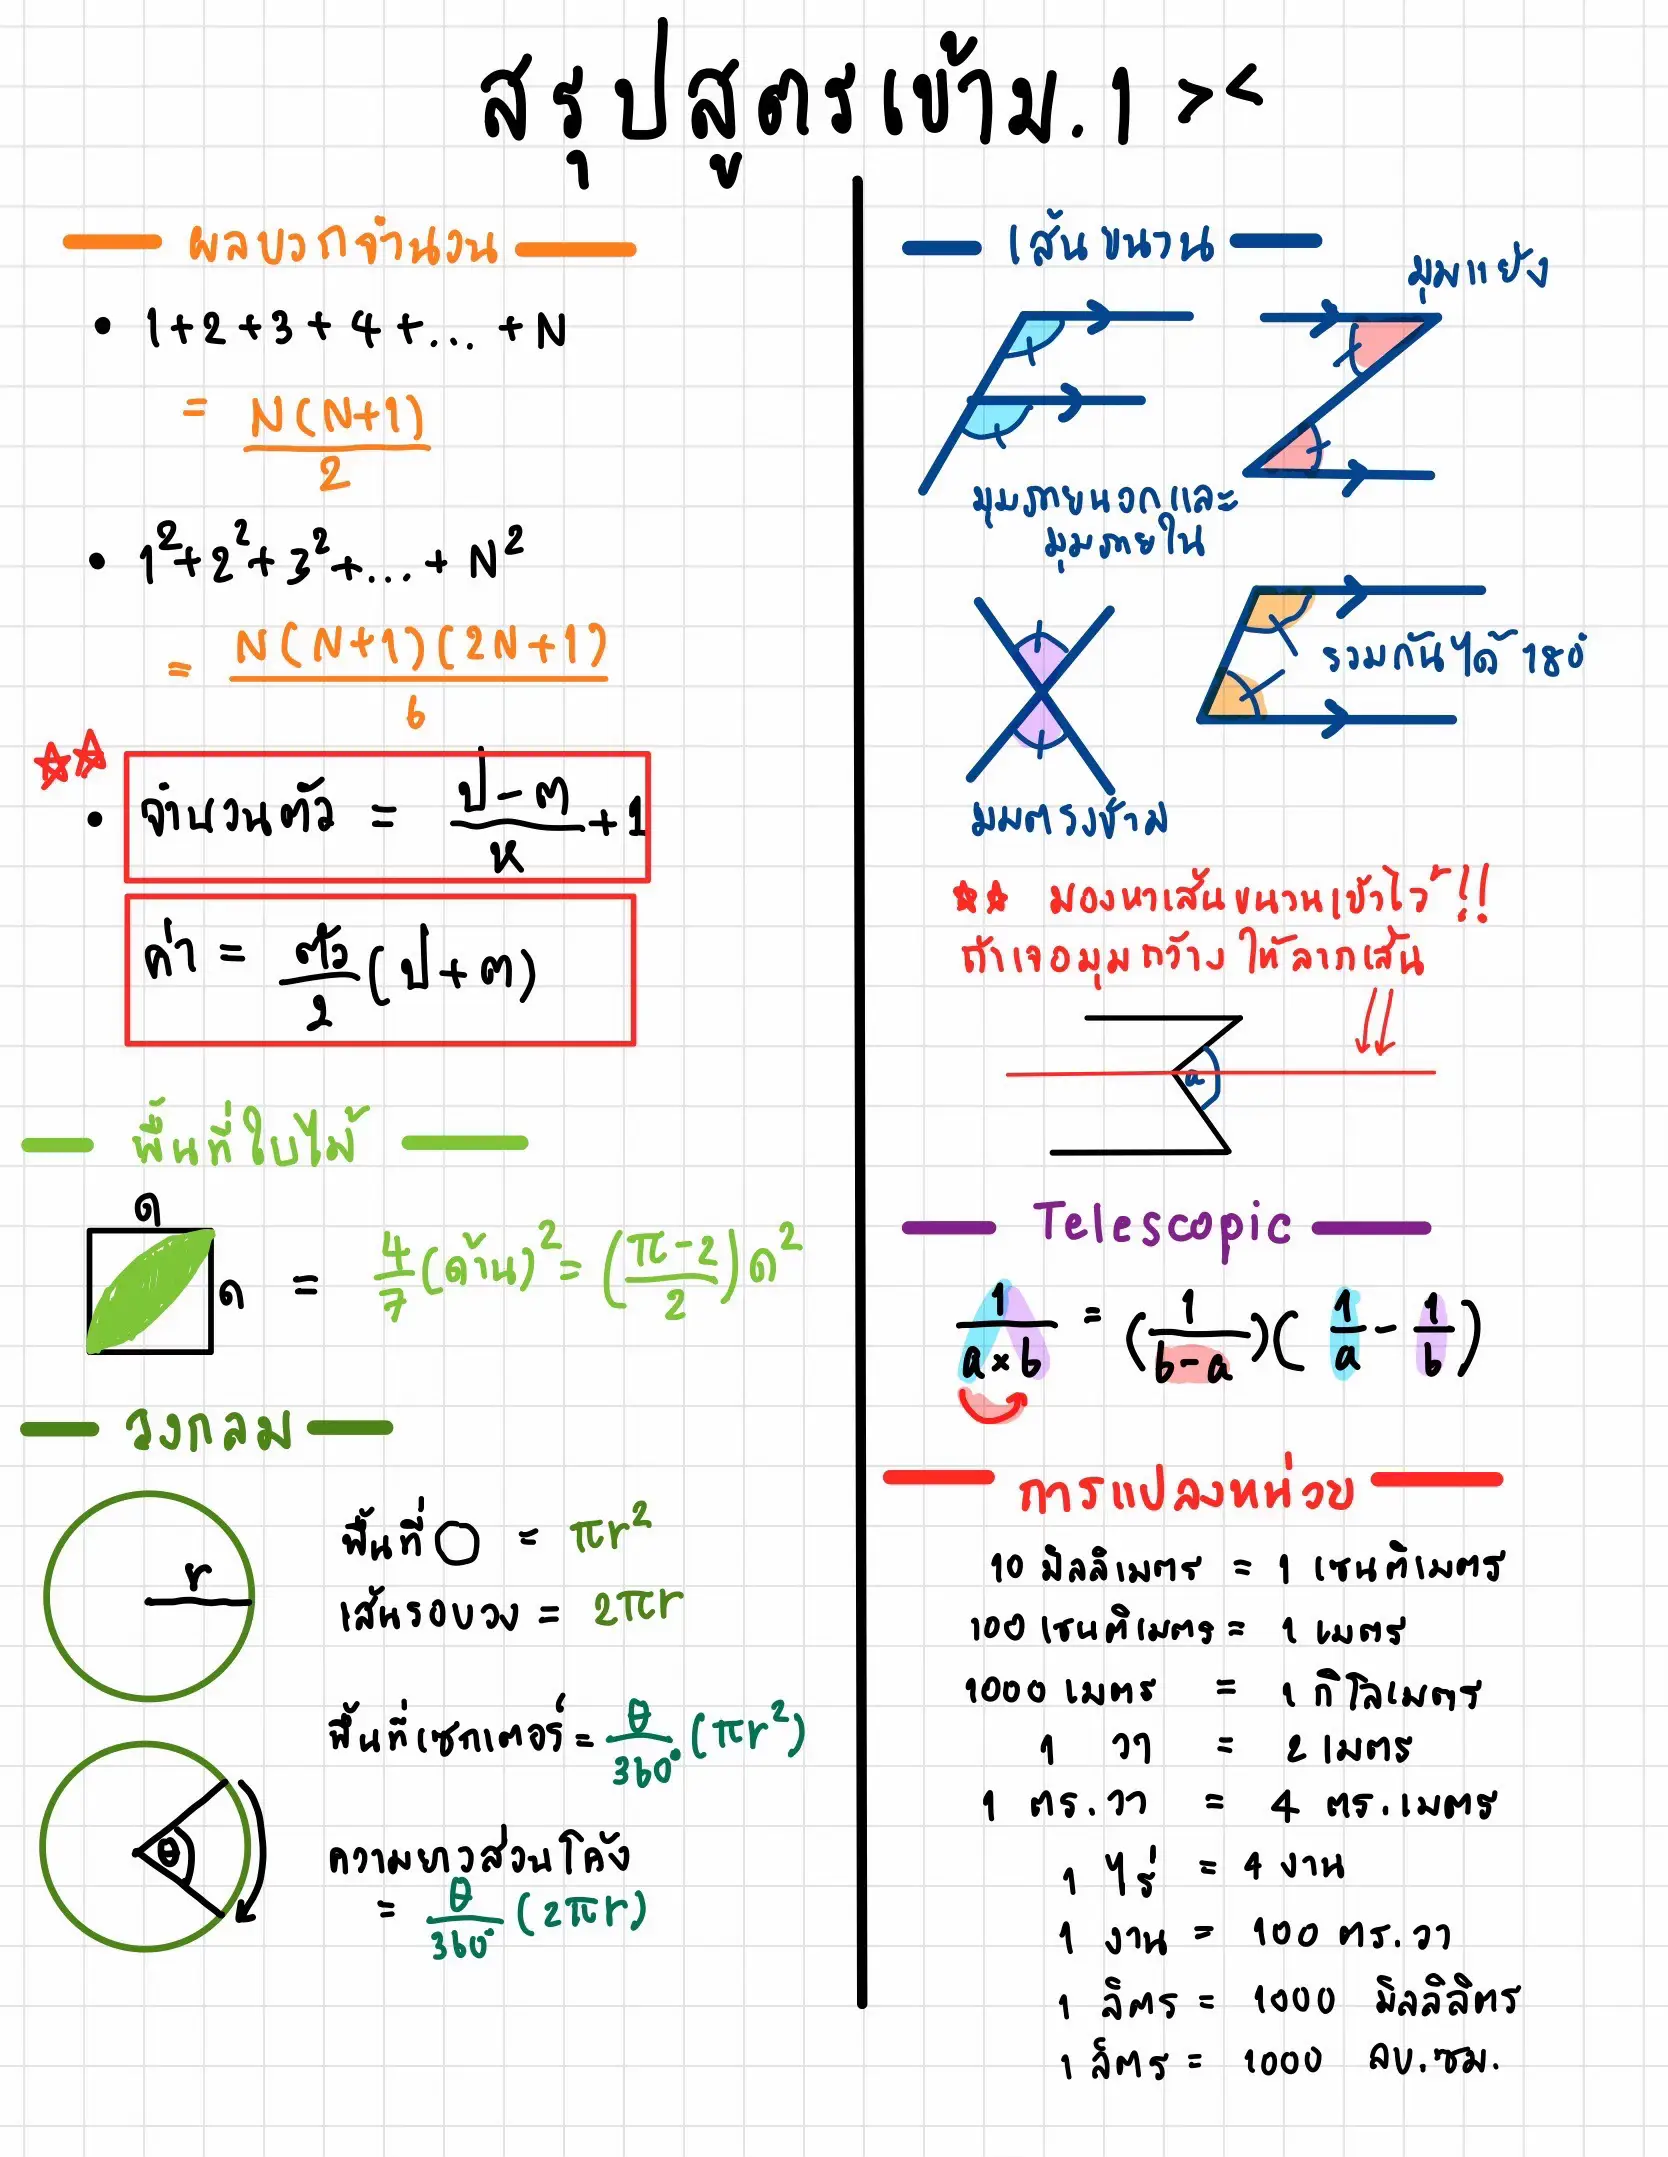 สรุปสูตรเข้าม.1 ><
ผลบวกจำนวน
• 1+2+3+4+... +N
= N(N+1)/2
• 1²+2²+3²+...+ N²
= N(N+1)(2N+1)/6
• จำนวนตัว = (ป-ต)/ห +1
ค่า = ตัว/2 (ป+ต)
พื้นที่ใบไม้
ด
ด = 4/7 (ด้าน)² = ((π-2)/2) ด²
วงกลม
r
พื้นที่ ○ = πr²
เส้นรอบวง = 2πr
พื้นที่เซกเตอร์ = θ/360° (πr²)
θ
ความยาวส่วนโค้ง
= θ/360° (2πr)
เส้นขนาน
มุมแย้ง
มุมภายนอกและ
มุมภายใน
รวมกันได้ 180°
มุมตรงข้าม
มองหาเส้นขนานเข้าไว้!!
ถ้าเจอมุมกว้าง ให้ลากเส้น
a
Telescopic
1/(a×b) = (1/(b-a))(1/a - 1/b)
การแปลงหน่วย
10 มิลลิเมตร = 1 เซนติเมตร
100 เซนติเมตร = 1 เมตร
1000 เมตร = 1 กิโลเมตร
1 วา = 2 เมตร
1 ตร.วา = 4 ตร.เมตร
1 ไร่ = 4 งาน
1 งาน = 100 ตร.วา
1 ลิตร = 1000 มิลลิลิตร
1 ลิตร = 1000 ลบ.ซม.